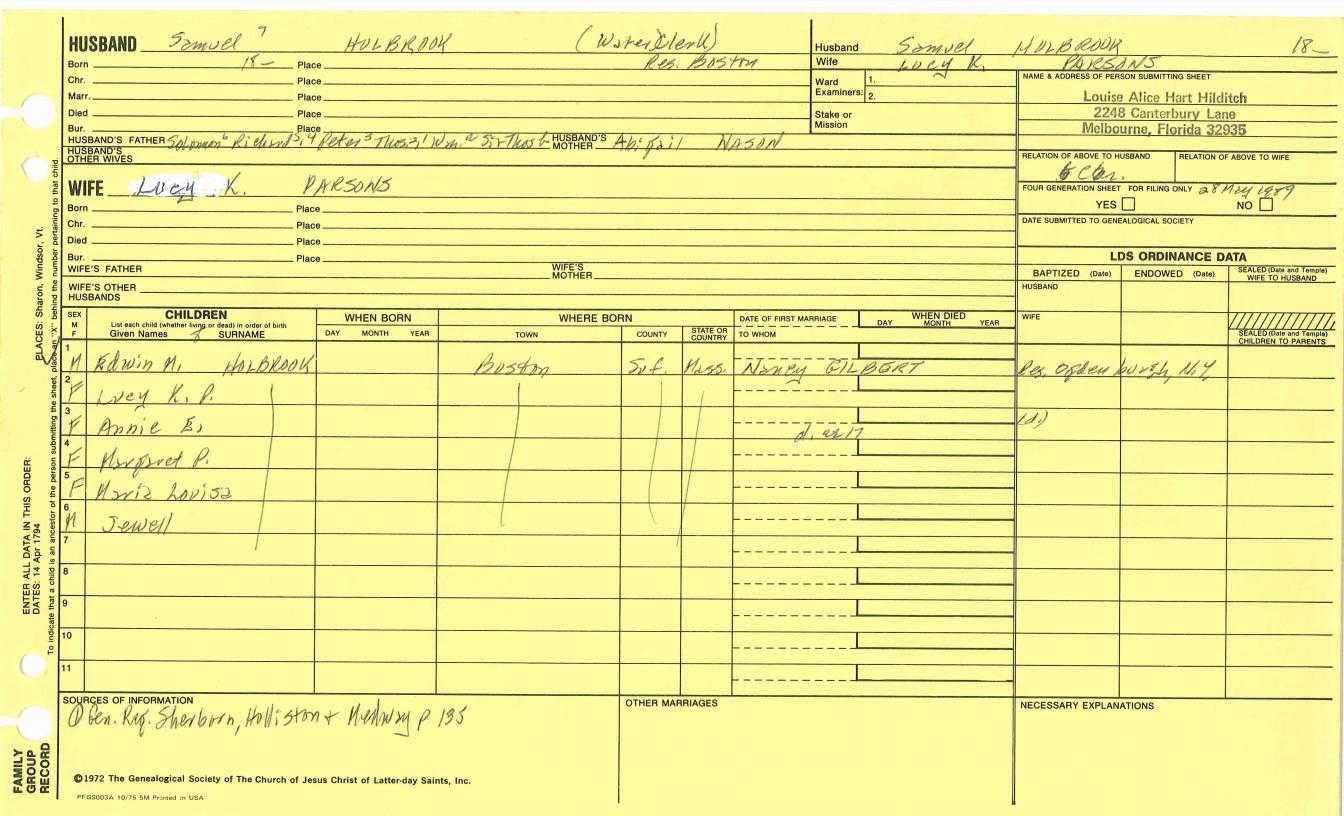 HUSBAND Samuel 7 HOLBROOK (Water Clerk)
Born 18— Place Res. Boston
Chr. Place
Marr. Place
Died Place
Bur. Place
HUSBAND'S FATHER Solomon 6 Richard 5, 4 Peter 3 Thos 2, 1 Wm. Sir Thos HUSBAND'S MOTHER Abigail NASON
HUSBAND'S OTHER WIVES
Husband Samuel HOLBROOK 18—
Wife Lucy K. PARSONS
Ward Examiners: 1.
2.
Stake or Mission
NAME & ADDRESS OF PERSON SUBMITTING SHEET
Louise Alice Hart Hilditch
2248 Canterbury Lane
Melbourne, Florida 32935
RELATION OF ABOVE TO HUSBAND RELATION OF ABOVE TO WIFE
FOUR GENERATION SHEET FOR FILING ONLY 28 May 1989
YES NO
DATE SUBMITTED TO GENEALOGICAL SOCIETY
WIFE Lucy K. PARSONS
Born Place
Chr. Place
Died Place
Bur. Place
WIFE'S FATHER WIFE'S MOTHER
WIFE'S OTHER HUSBANDS
LDS ORDINANCE DATA
BAPTIZED (Date) ENDOWED (Date) SEALED (Date and Temple) WIFE TO HUSBAND
HUSBAND
WIFE
SEALED (Date and Temple) CHILDREN TO PARENTS
SEX M F
CHILDREN
List each child (whether living or dead) in order of birth
Given Names SURNAME
WHEN BORN
DAY MONTH YEAR
WHERE BORN
TOWN COUNTY STATE OR COUNTRY
DATE OF FIRST MARRIAGE
TO WHOM
WHEN DIED
DAY MONTH YEAR
1 M Edwin M. HOLBROOK Boston Suf. Mass. Nancy GILBERT Res. Ogdenburgh, N.Y.
2 F Lucy K. P.
3 F Annie E. d. ae 17 (d.)
4 F Margaret P.
5 F Maria Louisa
6 M Jewell
7
8
9
10
11
SOURCES OF INFORMATION
① Gen. Reg. Sherborn, Holliston & Medway p 135
OTHER MARRIAGES
NECESSARY EXPLANATIONS
©1972 The Genealogical Society of The Church of Jesus Christ of Latter-day Saints, Inc.
PFGS003A 10/75 5M Printed in USA
FAMILY GROUP RECORD
ENTER ALL DATA IN THIS ORDER:
DATES: 14 Apr 1794
PLACES: Sharon, Windsor, Vt.
To indicate that a child is an ancestor of the person submitting the sheet, place an "X" behind the number pertaining to that child